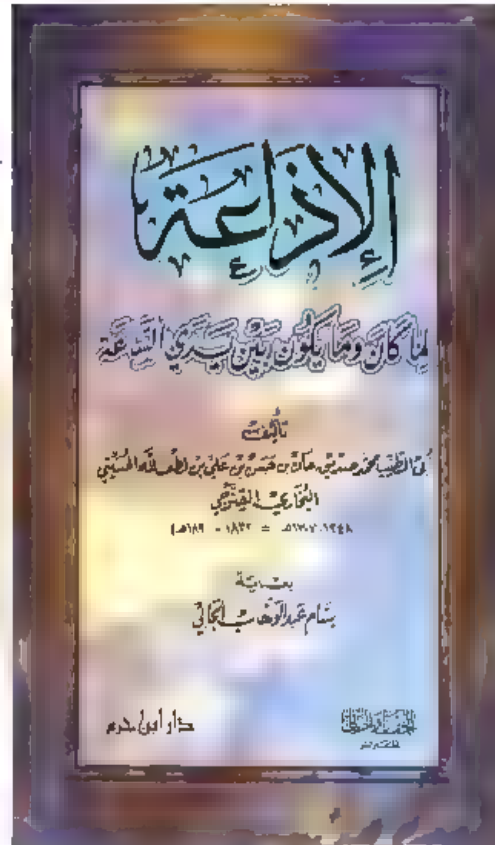 الإذاعة
لما كان وما يكون بين يدي الساعة
تأليف
أبي الطيب محمد صديق خان بن حسن بن علي بن لطف الله الحسيني
البخاري القنوجي
١٢٤٨ - ١٣٠٧هـ = ١٨٣٢ - ١٨٩٠م
بعناية
بسام عبد الوهاب الجابي
دار ابن حزم